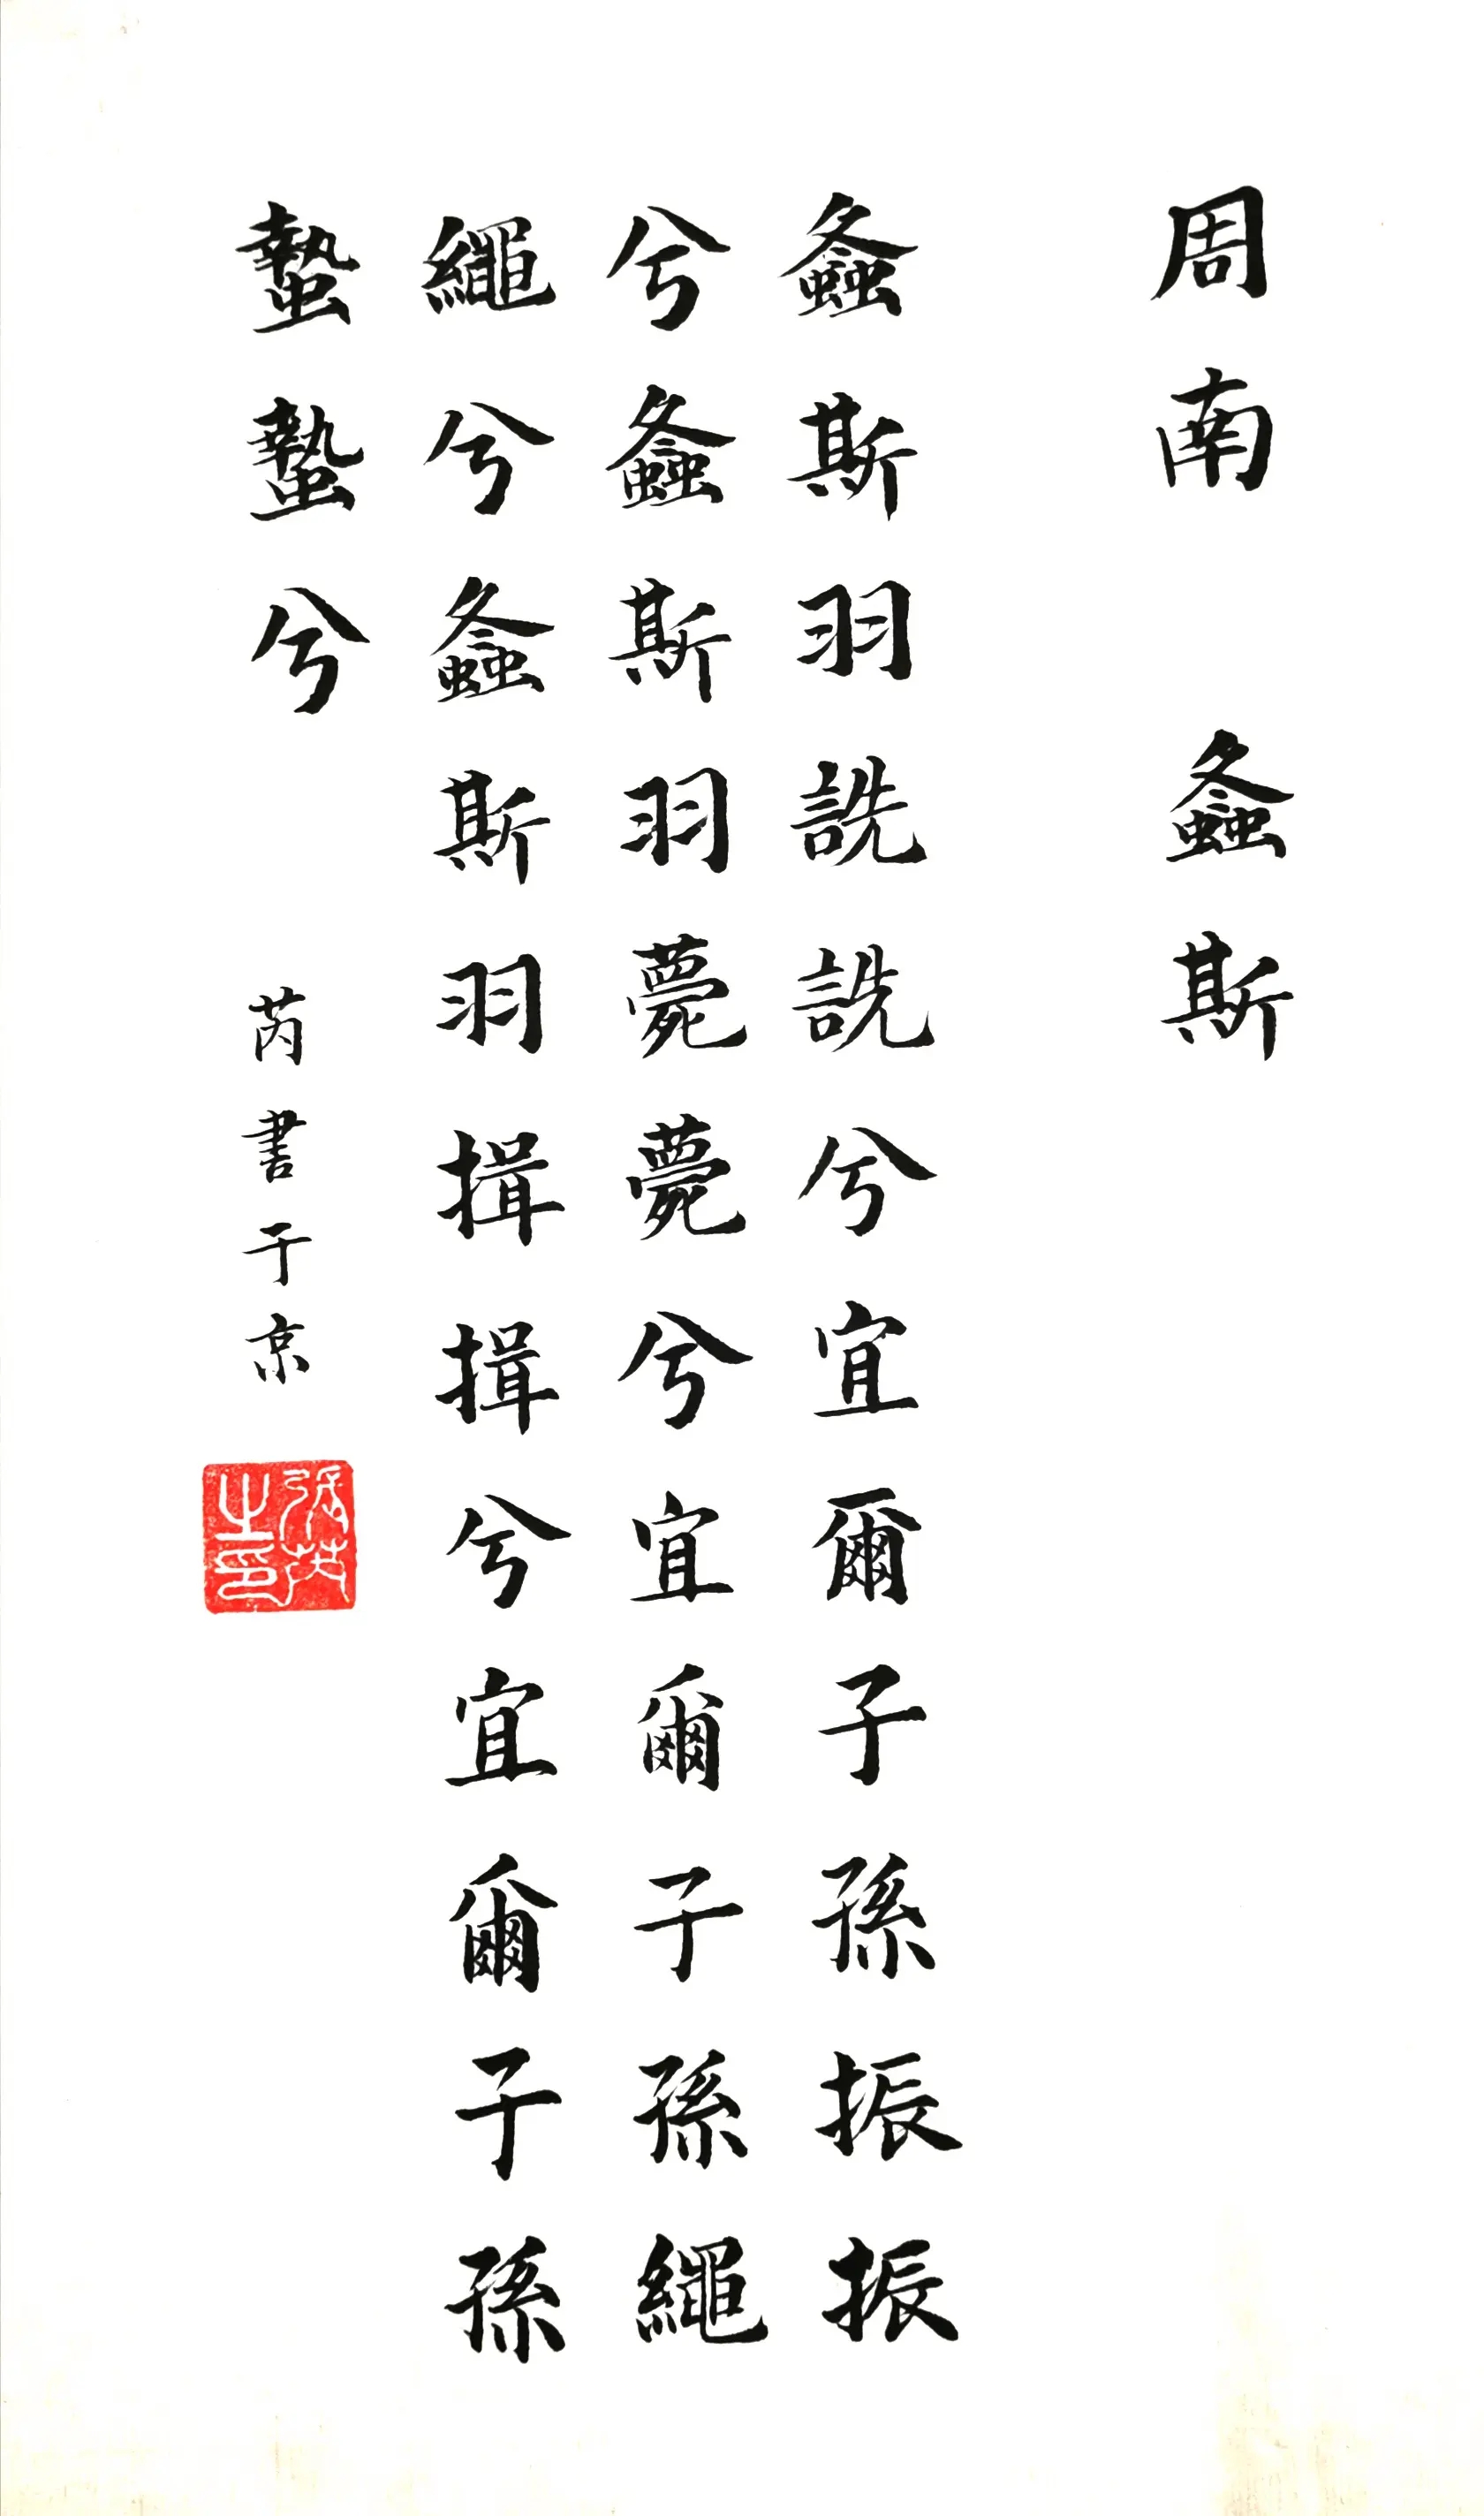 周南 螽斯
螽斯羽詵詵兮宜爾子孫振振
兮螽斯羽薨薨兮宜爾子孫繩
繩兮螽斯羽揖揖兮宜爾子孫
蟄蟄兮
芮書于京